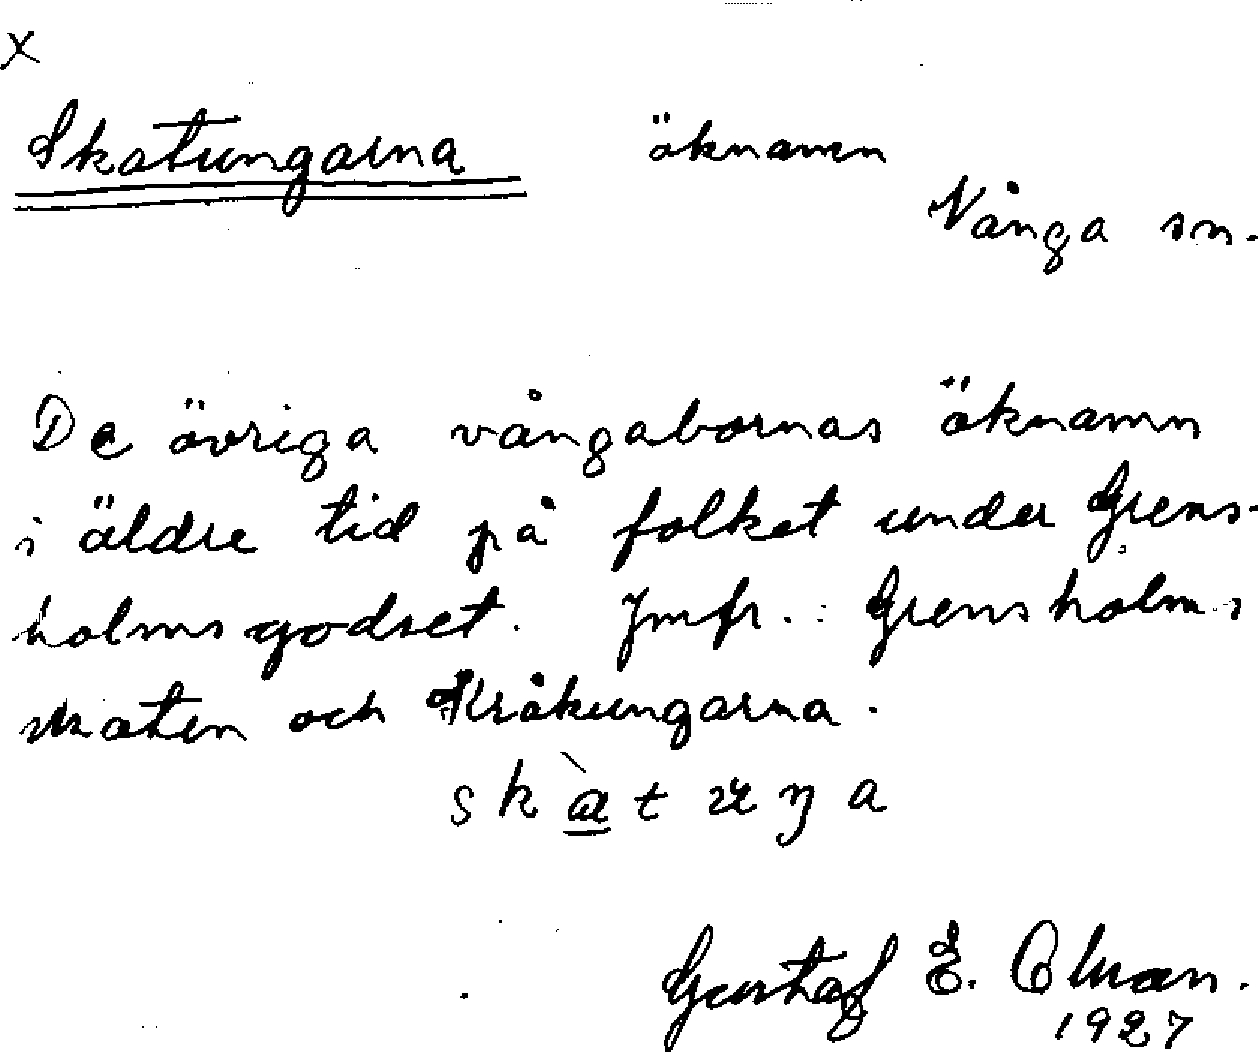 X
Skatungarna öknamn
Vånga sn.
De övriga vångabornas öknamn
i äldre tid på folket under Grens-
holmsgodset. Jmfr.: Grensholms
skaten och Kråkungarna.
skàtuŋa
Gustaf E.
1927